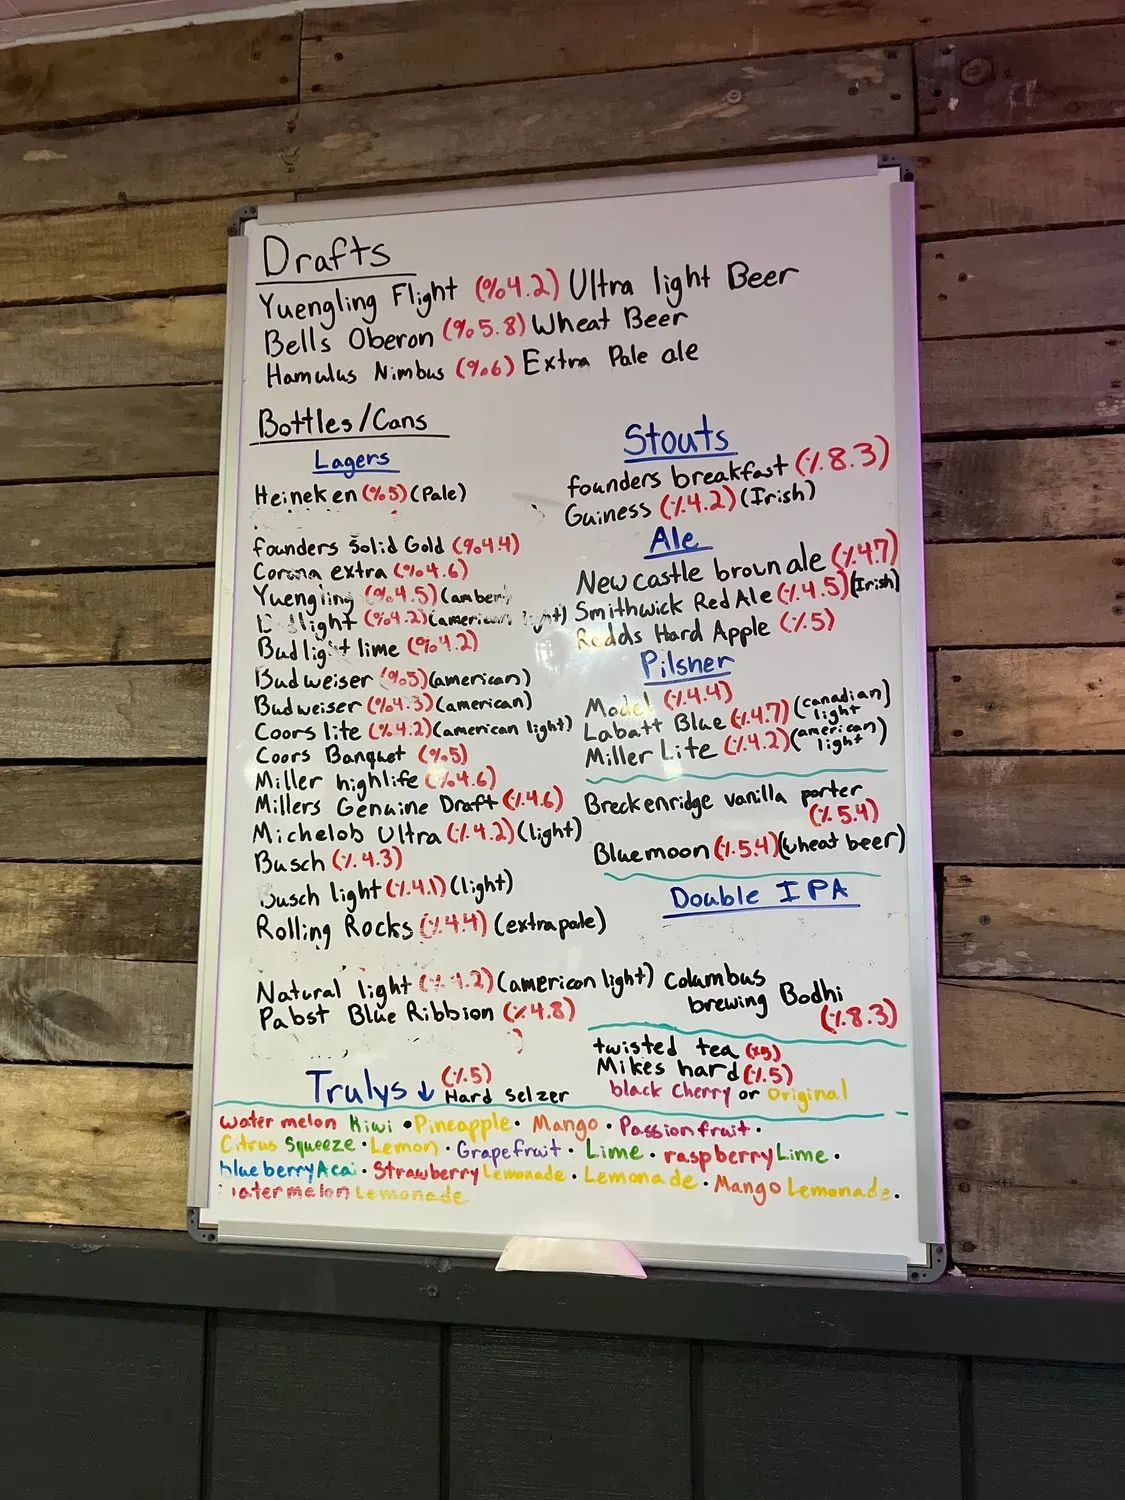 Drafts
Yuengling Flight (%4.2) Ultra light Beer
Bells Oberon (%5.8) Wheat Beer
Hamulus Nimbus (%6) Extra Pale ale
Bottles/Cans
Lagers
Heineken (%5) (Pale)
founders Solid Gold (%4.4)
Corona extra (%4.6)
Yuengling (%4.5) (amber)
light (%4.2) (american light)
Bud light lime (%4.2)
Budweiser (%5) (american)
Budweiser (%4.3) (american)
Coors lite (%4.2) (american light)
Coors Banquet (%5)
Miller highlife (%4.6)
Millers Genuine Draft (%4.6)
Michelob Ultra (%4.2) (light)
Busch (%4.3)
Busch light (%4.1) (light)
Rolling Rocks (%4.4) (extra pale)
Natural light (%4.2) (american light)
Pabst Blue Ribbion (%4.8)
Stouts
founders breakfast (%8.3)
Guiness (%4.2) (Irish)
Ale
Newcastle brown ale (%4.7)
Smithwick Red Ale (%4.5) (Irish)
Redds Hard Apple (%5)
Pilsner
Model (%4.4)
Labatt Blue (%4.7) (canadian light)
Miller Lite (%4.2) (american light)
Breckenridge vanilla porter
(%5.4)
Bluemoon (%5.4) (wheat beer)
Double IPA
Columbus
brewing Bodhi
(%8.3)
twisted tea (%5)
Mikes hard (%5)
black Cherry or Original
Trulys ↓ (%5) Hard selzer
watermelon Kiwi • Pineapple • Mango • Passionfruit •
Citrus Squeeze • Lemon • Grapefruit • Lime • raspberry Lime •
blueberry Acai • Strawberry Lemonade • Lemonade • Mango Lemonade •
watermelon Lemonade